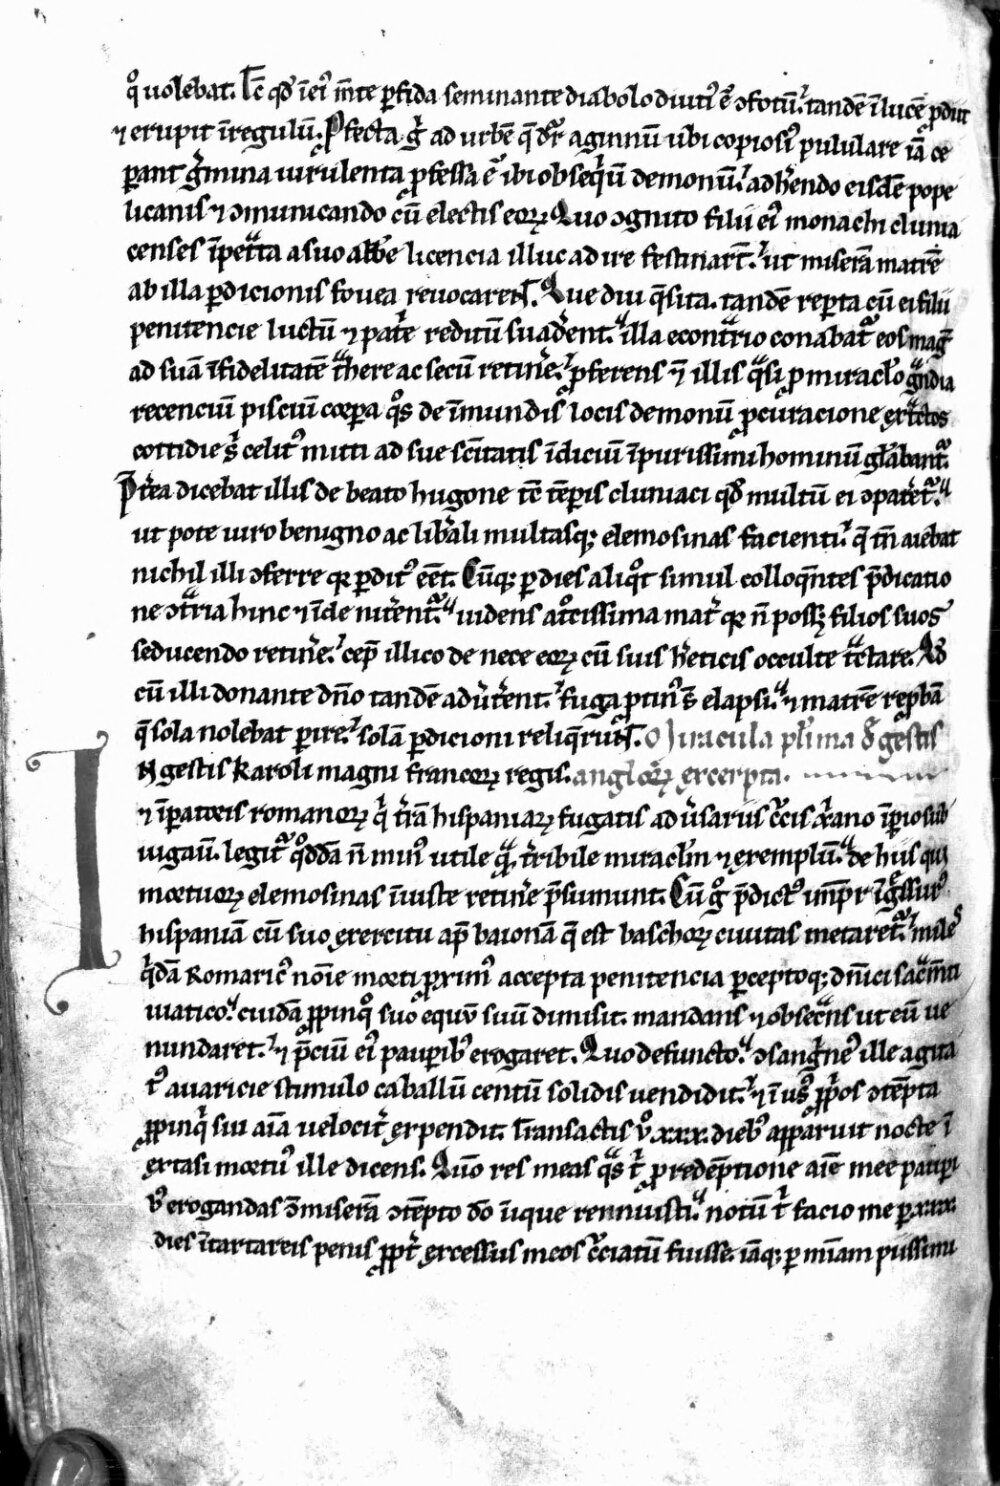 q̊ uolebat. Ic̄ qd̄ īeiꝰ m̄te ꝑfida seminante diabolo diutiꝰ ē ɔfotū. tandē īlucē ꝓdiit
⁊ erupit īregulū. Ꝓfecta g̊ ad urbē q̄ dr̄ aginnū ubi copiosiꝰ pululare iā ce
ꝑant g̊mina uirulenta ꝓfessa ē ibi obseq̄ū demonū. adh̄endo eisdē pope
licanis ⁊ ɔmunicando cū electis eoꝝ. Quo ɔgnito filii eiꝰ monachi clunia
censes īpet̄ta a suo abb̄e licencia illuc adire festinar̄t. ut miserā matrē
ab illa ꝑdicionis fouea reuocarēt. Que diu q̄sita. tandē reꝑta cū ei filii
penitencie luctū ⁊ pat̄e reditū suad̄ent. illa econt̄rio conabat᷑ eos mag̊
ad suā īfidelitatē t̄here ac secū retin̄e. ꝓferens n̄ illis q̄si ꝓ miraclo g̊ndia
recenciū pisciū corꝑa q̊s de īmundis locis demonū ꝓcuracione ext̄ctos
cottidie s͛ celitꝰ mitti ad sue sc̄itatis īdiciū īpurissimi hominū gl̄abant᷑.
P̄t̄ea dicebat illis de beato hugone tc̄ tēꝑis cluniaci qd̄ multū ei ɔpat̄et᷑.
ut pote uiro benigno ac lib̄ali multasq; elemosinas facienti. q̄ tn̄ aiebat
nichil illi ɔferre qꝛ ꝑditꝰ eēt. Cūq; ꝑ dies aliq̊t simul colloq̄ntes p̄dicatio
ne ɔt̄ria hinc ⁊ īde nit̄ent᷑. uidens atrocissima mat̄ qꝛ n̄ poss; filios suos
seducendo retin̄e. cep̄ illico de nece eoꝝ cū suis h̄eticis occulte t̄ctare. Ad
cū illi donante dn̄o tandē adūt̄ent. fuga ꝓtinꝰ s̄t elapsi. ⁊ matrē reꝓbā
q̄ sola nolebat ꝑire. solā ꝑdicioni reliq̄rūt. Miracula pl̄ima d̄ gestis
N gestis Karoli magni francoꝝ regis. angloꝝ excerpta.
⁊ īꝑatoris romanoꝝ q̊ t̄rā hispaniaꝝ fugatis adūsariis c̄cis xp̄iano īꝑio sub
iugaū. legit᷑ q̊ddā n̄ minꝰ utile q̄ t̄ribile miraclm̄ ⁊ exemplū. de hiis qui
mortuoꝝ elemosinas īiuste retin̄e p̄sumunt. Cū g̊ p̄dictꝰ imp̄r īg̊ssurꝰ
hispaniā cū suo exercitu ap̄ baionā q̄ est baschoꝝ ciuitas metaret᷑. miles
q̊dā Romaricꝰ noīe morti ꝓximꝰ accepta penitencia ꝑceptoq; dn̄ici sac̄m̄ti
uiatico. cuidā ꝓpinq̊ suo equū suū dimisit. mandans ⁊ obsec̄ns ut eū ue
nundaret. ⁊ p̄ciū eiꝰ pauꝑibꝰ erogaret. Quo defuncto. ɔsang̊neꝰ ille agita
tꝰ auaricie stimulo caballū centū solidis uendidit. ⁊ ī usꝰ ꝓp̊os ɔtēpta
ꝓpinq̊ sui aīa uelocit̄ expendit. Transactis ů .xxx. diebꝰ apparuit nocte ī
extasi mortuꝰ ille dicens. Quō res meas q̄s t̊ ꝓ redēptione aīe mee pauꝑi
bꝰ erogandas dimiserā ɔtēpto dō īique rennuisti. notū t̊ facio me ꝑ .xxx.
dies ītartareis penis ꝓpt̄ excessus meos c̄ciatū fuisse. iāq; ꝑ mīam piissimi